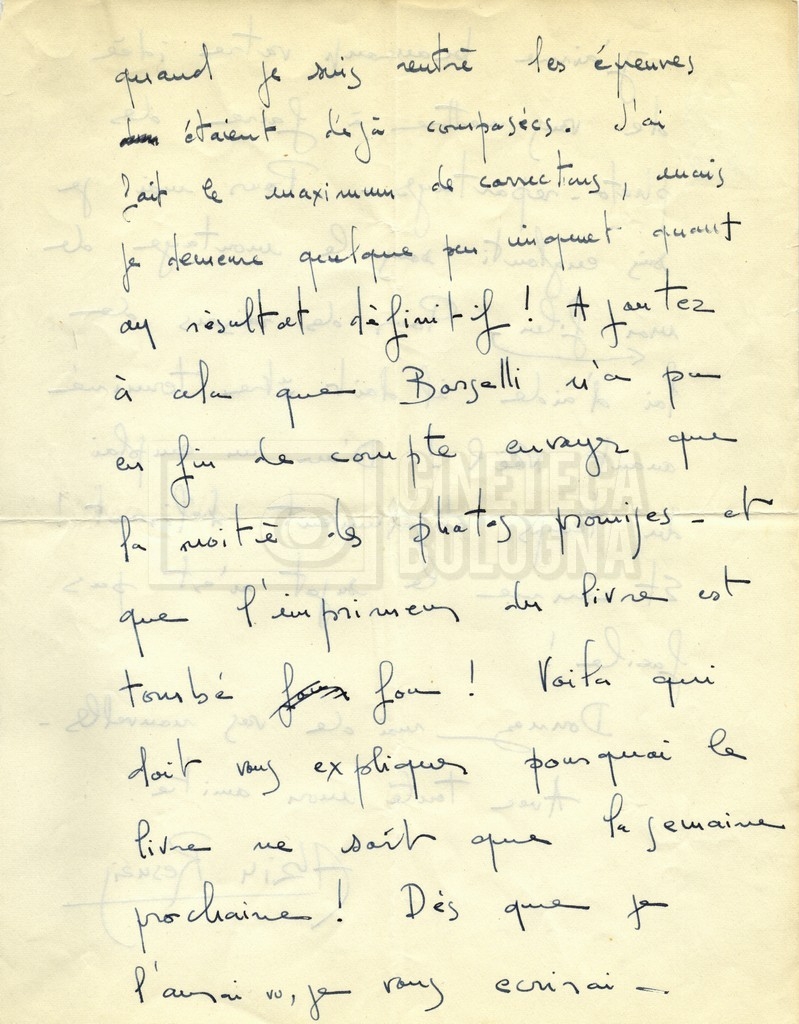 quand je suis rentré les épreuves
étaient déjà composées. J'ai
fait le maximum de corrections, mais
je demeure quelque peu inquiet quant
au résultat définitif ! Ajoutez
à cela que Borselli n'a pu
en fin de compte envoyer que
la moitié des photos promises - et
que l'imprimeur du livre est
tombé fou ! Voilà qui
doit vous expliquer pourquoi le
livre ne sort que la semaine
prochaine ! Dès que je
l'aurai vu, je vous ecrirai -
CINETECA
BOLOGNA